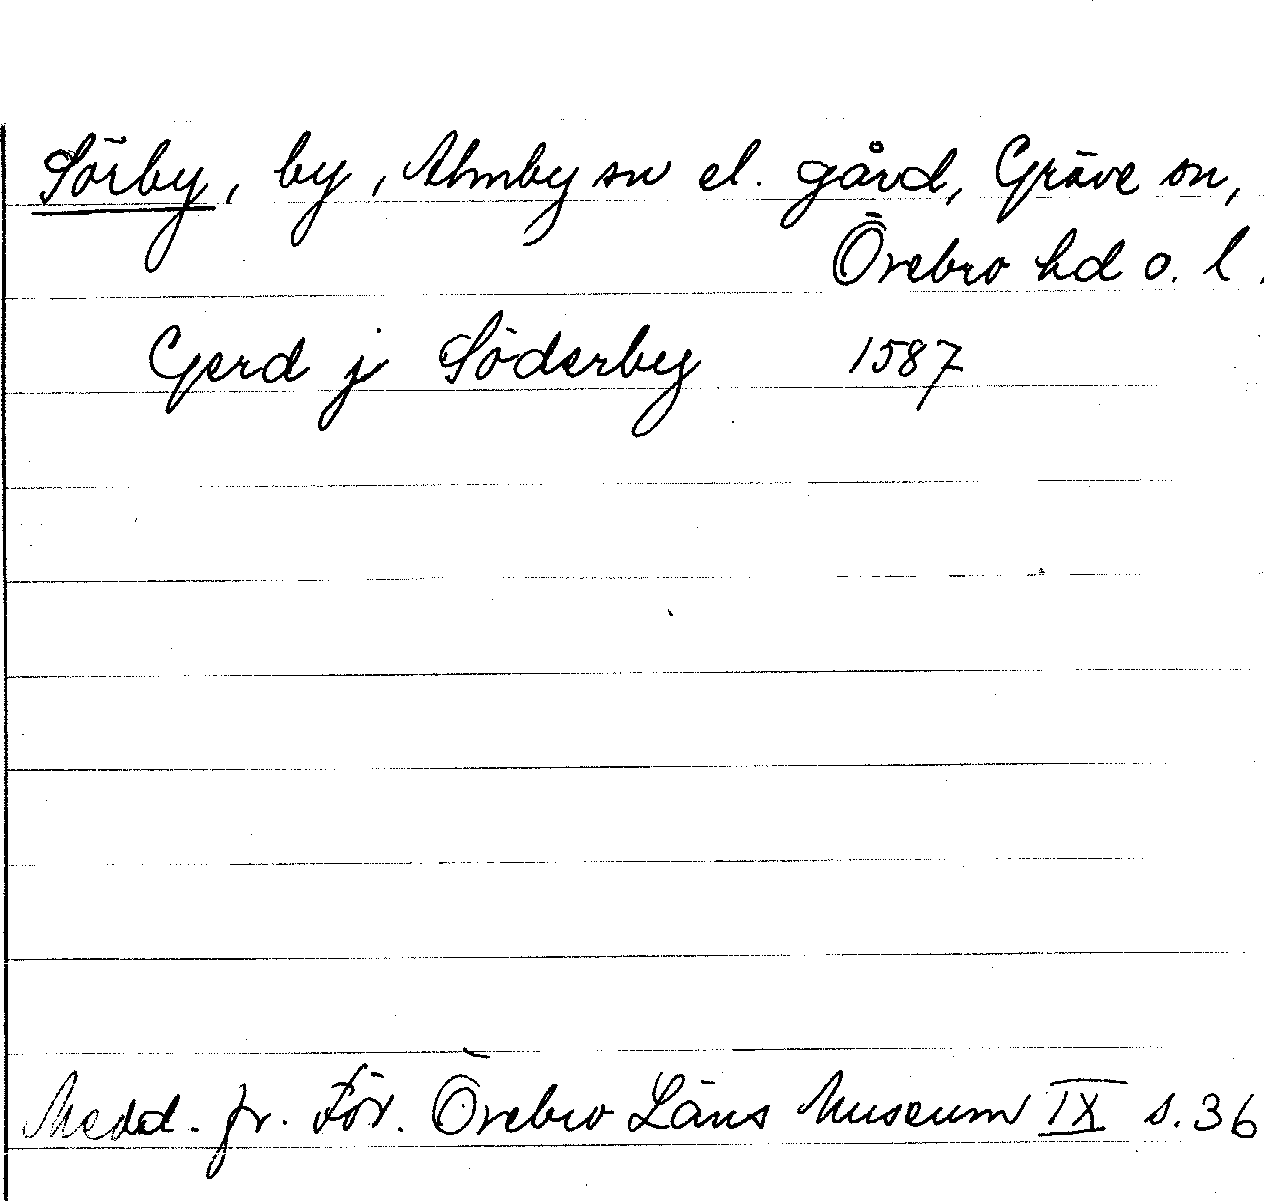 Sörby, by, Almby sn el. gård, Gräve sn,
Örebro hd o. l.
Gerd j Söderby 1587
Medd. fr. För. Örebro Läns Museum IX s. 36